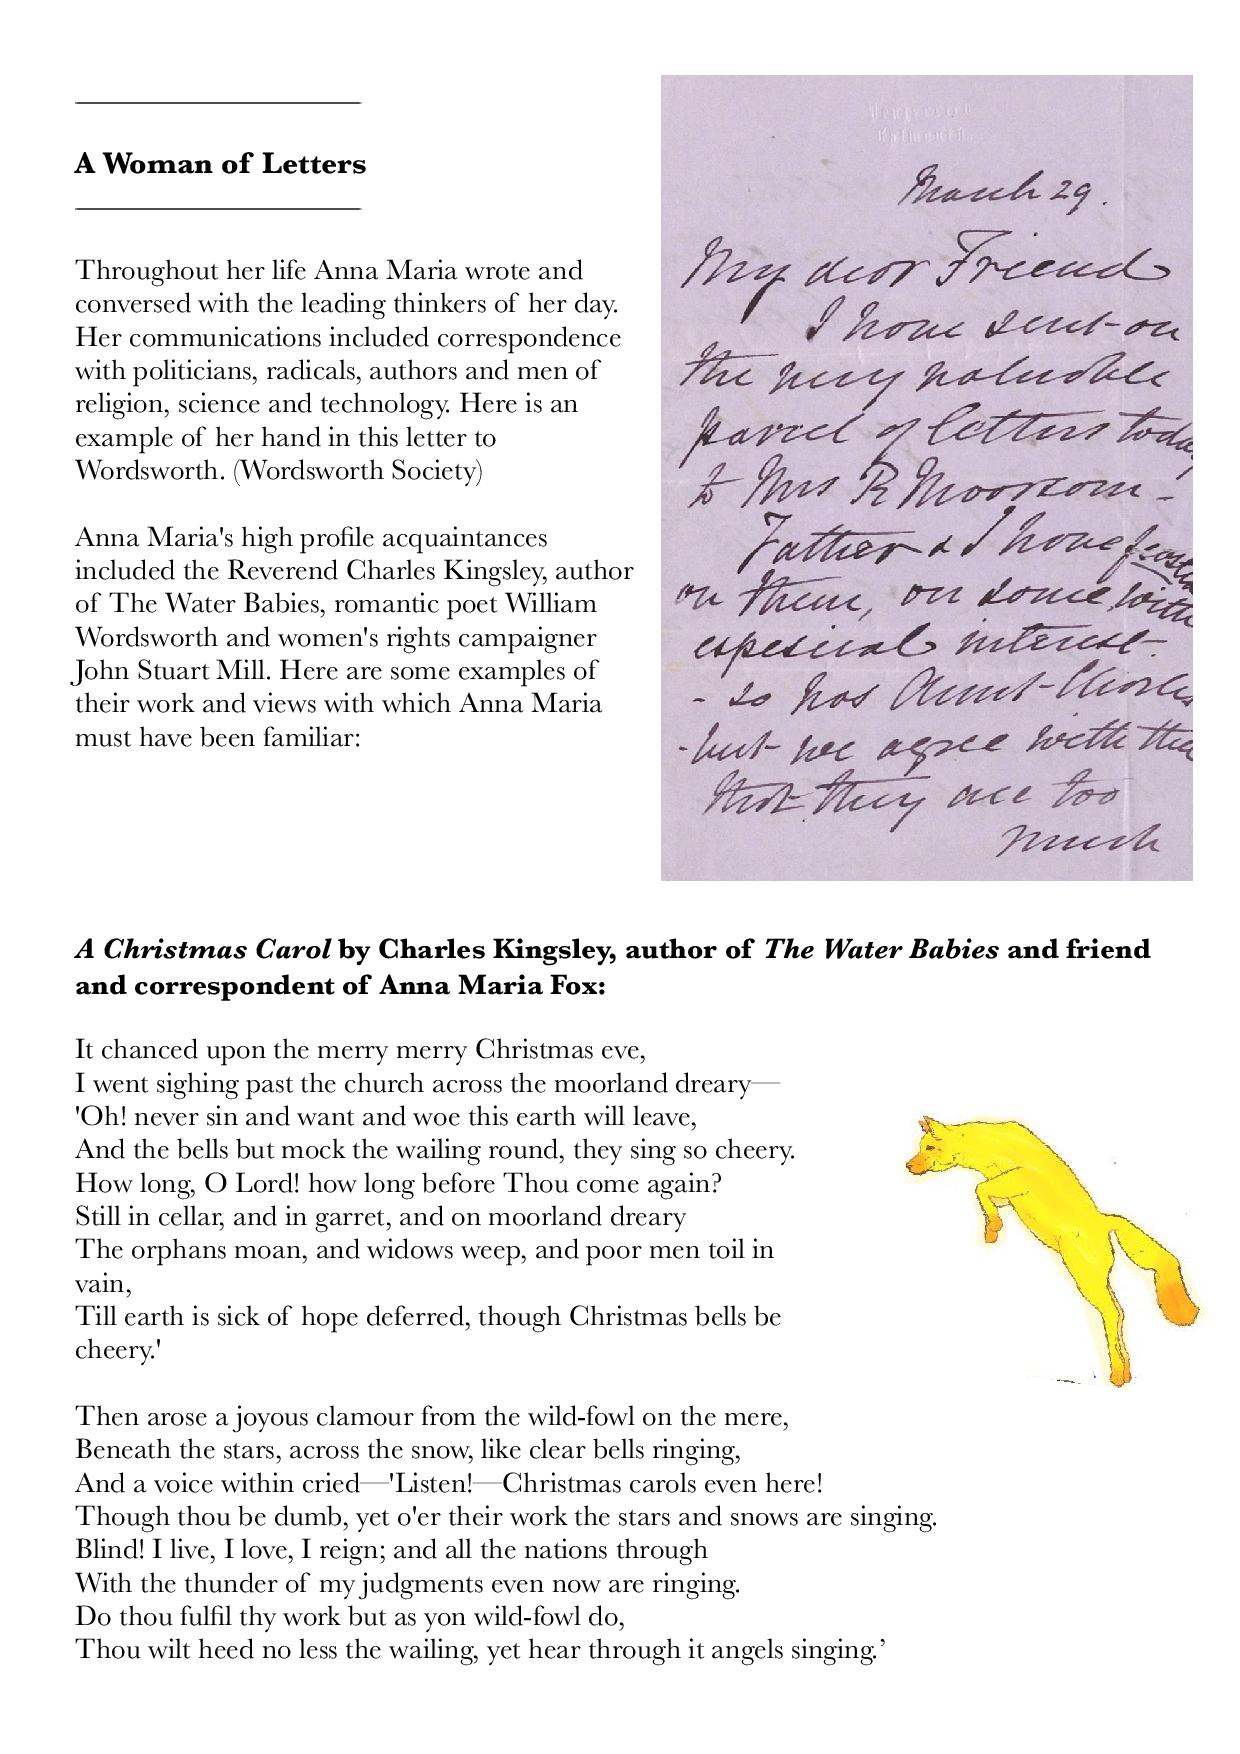 A Woman of Letters
Throughout her life Anna Maria wrote and
conversed with the leading thinkers of her day.
Her communications included correspondence
with politicians, radicals, authors and men of
religion, science and technology. Here is an
example of her hand in this letter to
Wordsworth. (Wordsworth Society)
Anna Maria's high profile acquaintances
included the Reverend Charles Kingsley, author
of The Water Babies, romantic poet William
Wordsworth and women's rights campaigner
John Stuart Mill. Here are some examples of
their work and views with which Anna Maria
must have been familiar:
March 29.
My dear Friend
I have sent on
the very valuable
parcel of letters today
to Mrs R Moorsom -
Father & I have
on them, on some, with
especial interest.
- so has Aunt Charles
- but we agree with thee
that they are too
much
A Christmas Carol by Charles Kingsley, author of The Water Babies and friend
and correspondent of Anna Maria Fox:
It chanced upon the merry merry Christmas eve,
I went sighing past the church across the moorland dreary—
'Oh! never sin and want and woe this earth will leave,
And the bells but mock the wailing round, they sing so cheery.
How long, O Lord! how long before Thou come again?
Still in cellar, and in garret, and on moorland dreary
The orphans moan, and widows weep, and poor men toil in
vain,
Till earth is sick of hope deferred, though Christmas bells be
cheery.'
Then arose a joyous clamour from the wild-fowl on the mere,
Beneath the stars, across the snow, like clear bells ringing,
And a voice within cried—'Listen!—Christmas carols even here!
Though thou be dumb, yet o'er their work the stars and snows are singing.
Blind! I live, I love, I reign; and all the nations through
With the thunder of my judgments even now are ringing.
Do thou fulfil thy work but as yon wild-fowl do,
Thou wilt heed no less the wailing, yet hear through it angels singing.’